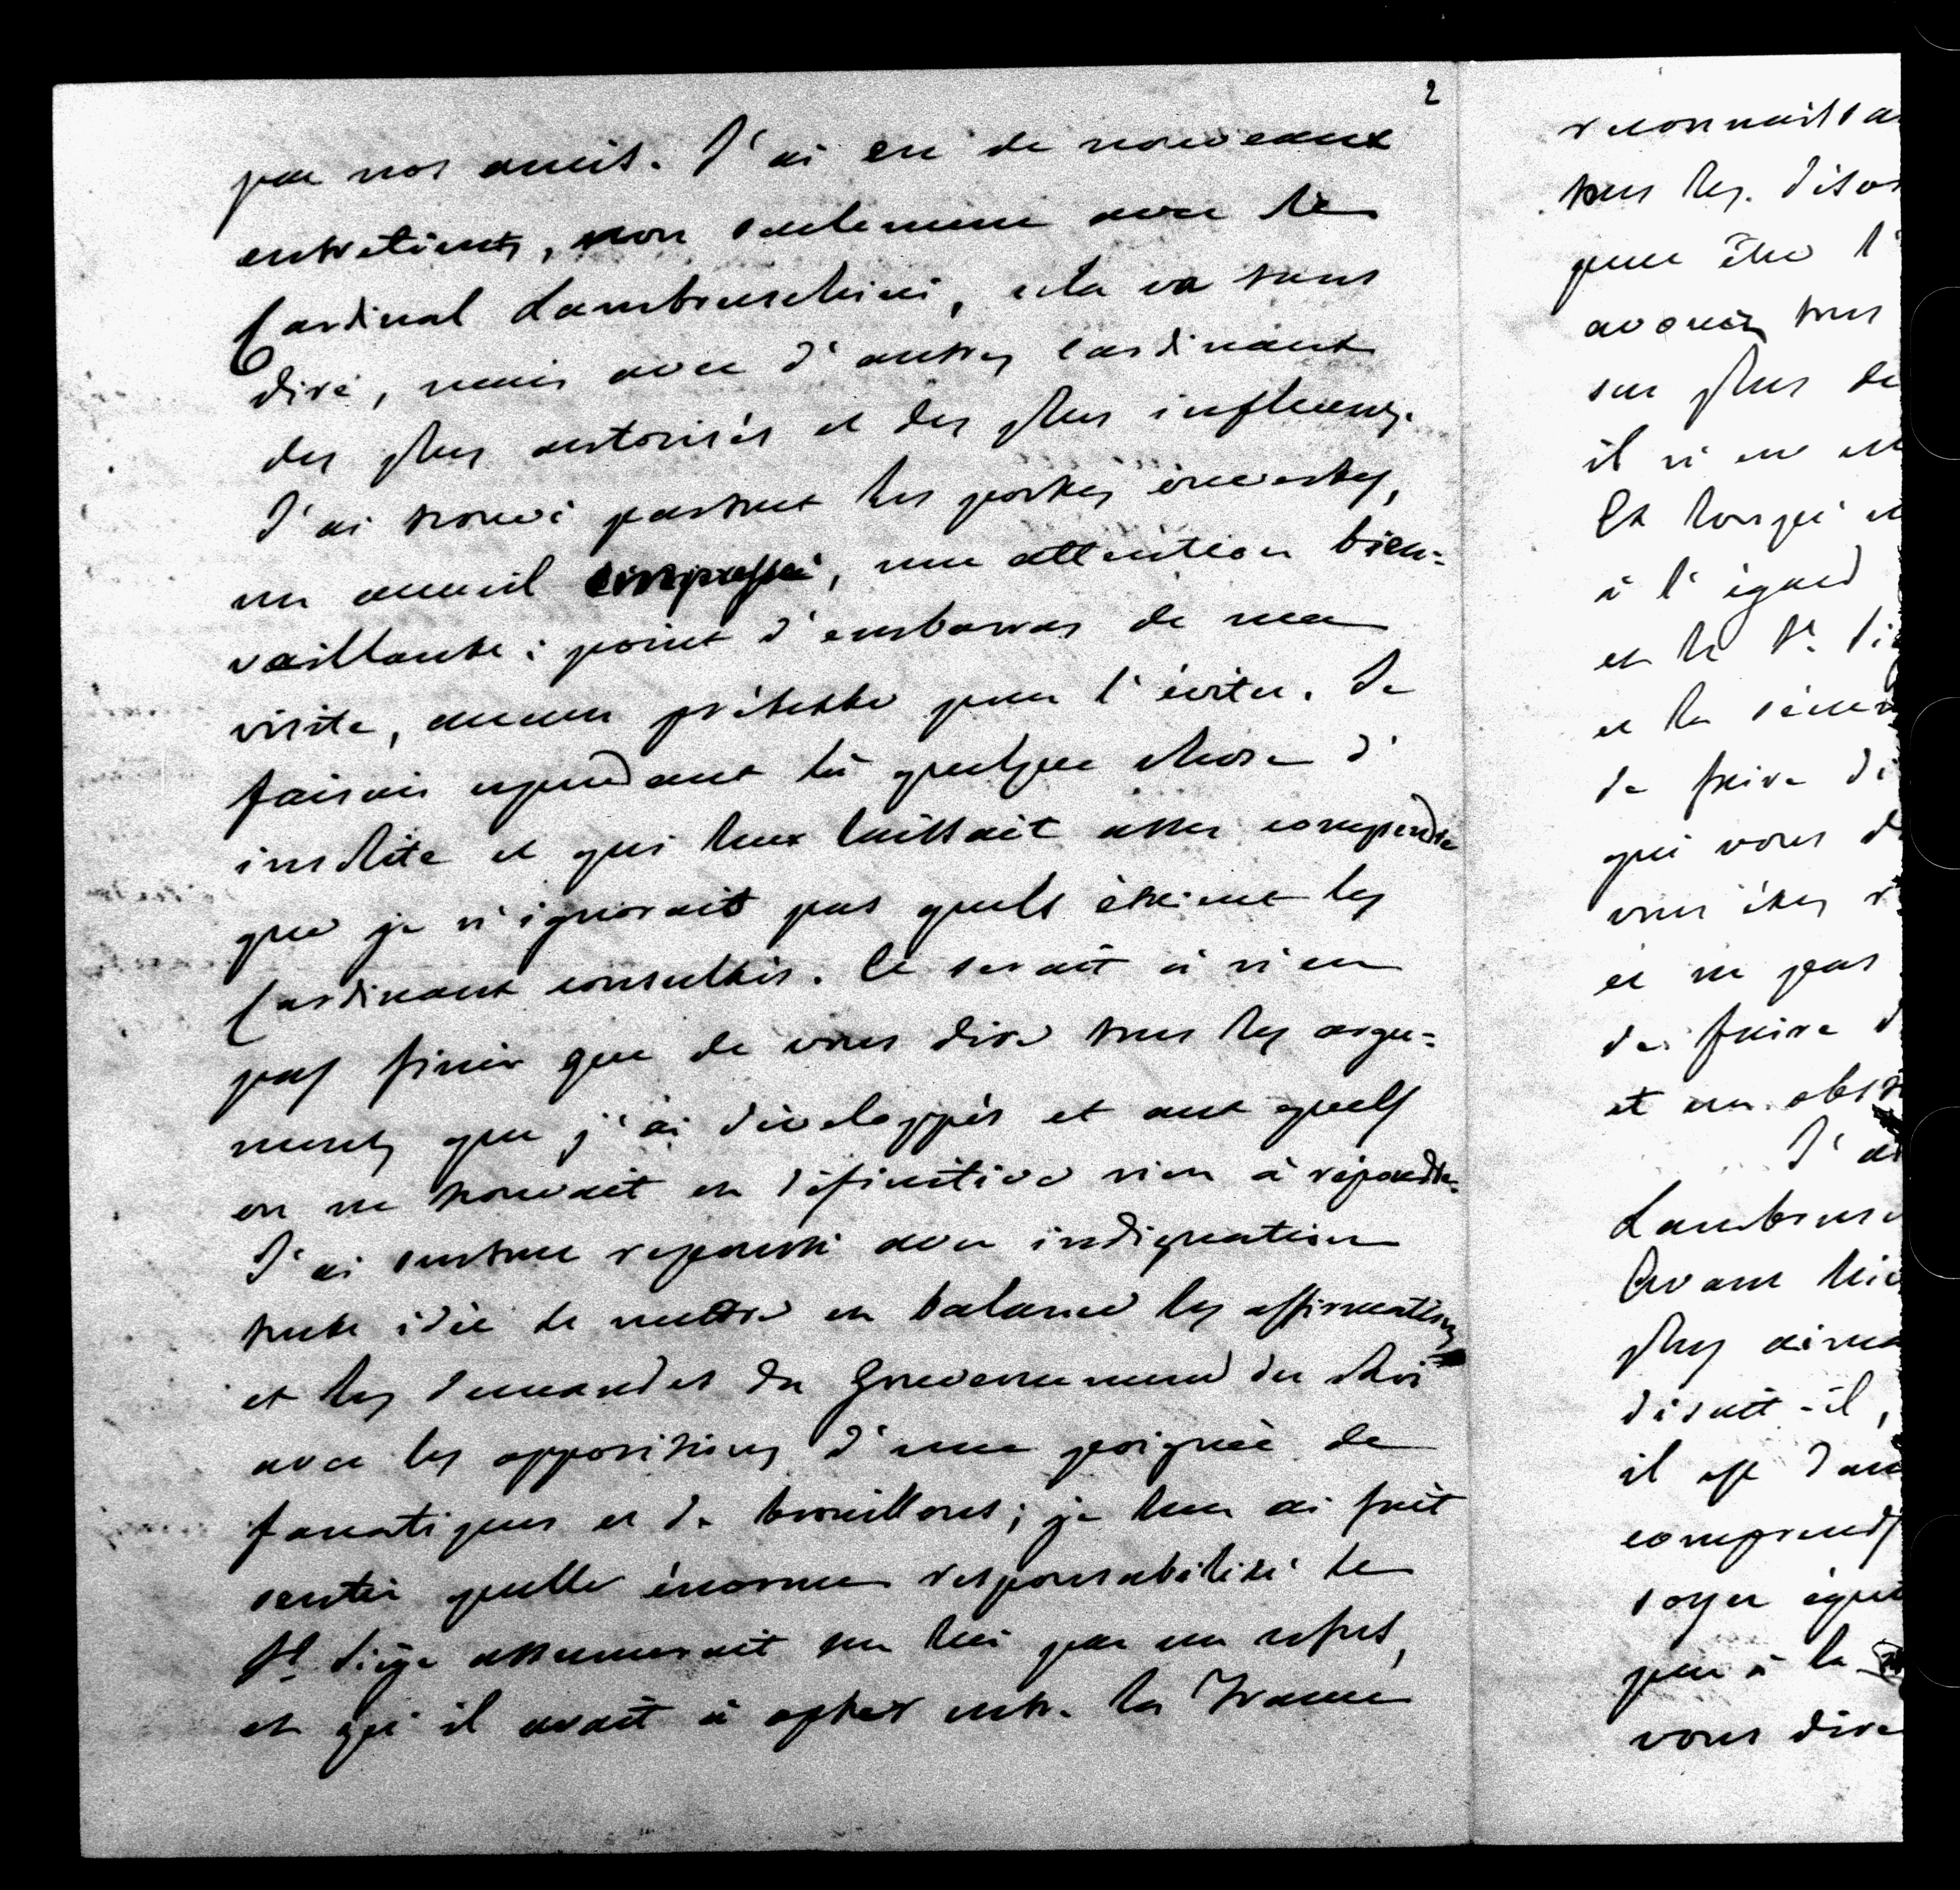 2
par nos amis. J'ai eu de nouveaux
entretiens, non seulement avec le
Cardinal Lambruschini, cela va sans
dire, mais avec d'autres cardinaux
des plus autorisés et des plus influens.
J'ai trouvé partout les portes ouvertes,
un accueil empressé, une attention bien-
veillante; point d'embarras de ma
visite, aucun prétexte pour l'éviter. Je
faisais cependant là quelque chose d'
insolite et qui leur laissait assez comprendre
que je n'ignorais pas quels étaient les
Cardinaux consultés. Ce serait à n'en
pas finir que de vous dire tous les argu-
ments que j'ai développés et aux quels
on ne trouvait en définitive rien à répondre.
J'ai surtout repoussé avec indignation
toute idée de mettre en balance les affirmations
et les demandes du Gouvernement du Roi
avec les oppositions d'une poignée de
fanatiques et de brouillons; je leur ai fait
sentir quelle énorme responsabilité le
St. Siège assumerait sur lui par un refus,
et qu'il avait à opter entre la France
tous les
peut être l'
avouer tous
sur plus de
il n'en est
Et lorsqu'
à l'égard
et le St.
et la
de faire
qui vous
vous êtes
et ne pas
de faire
et un
J'ai
Avant
plus
disait-il,
il est
soyez
peu à la
vous dire